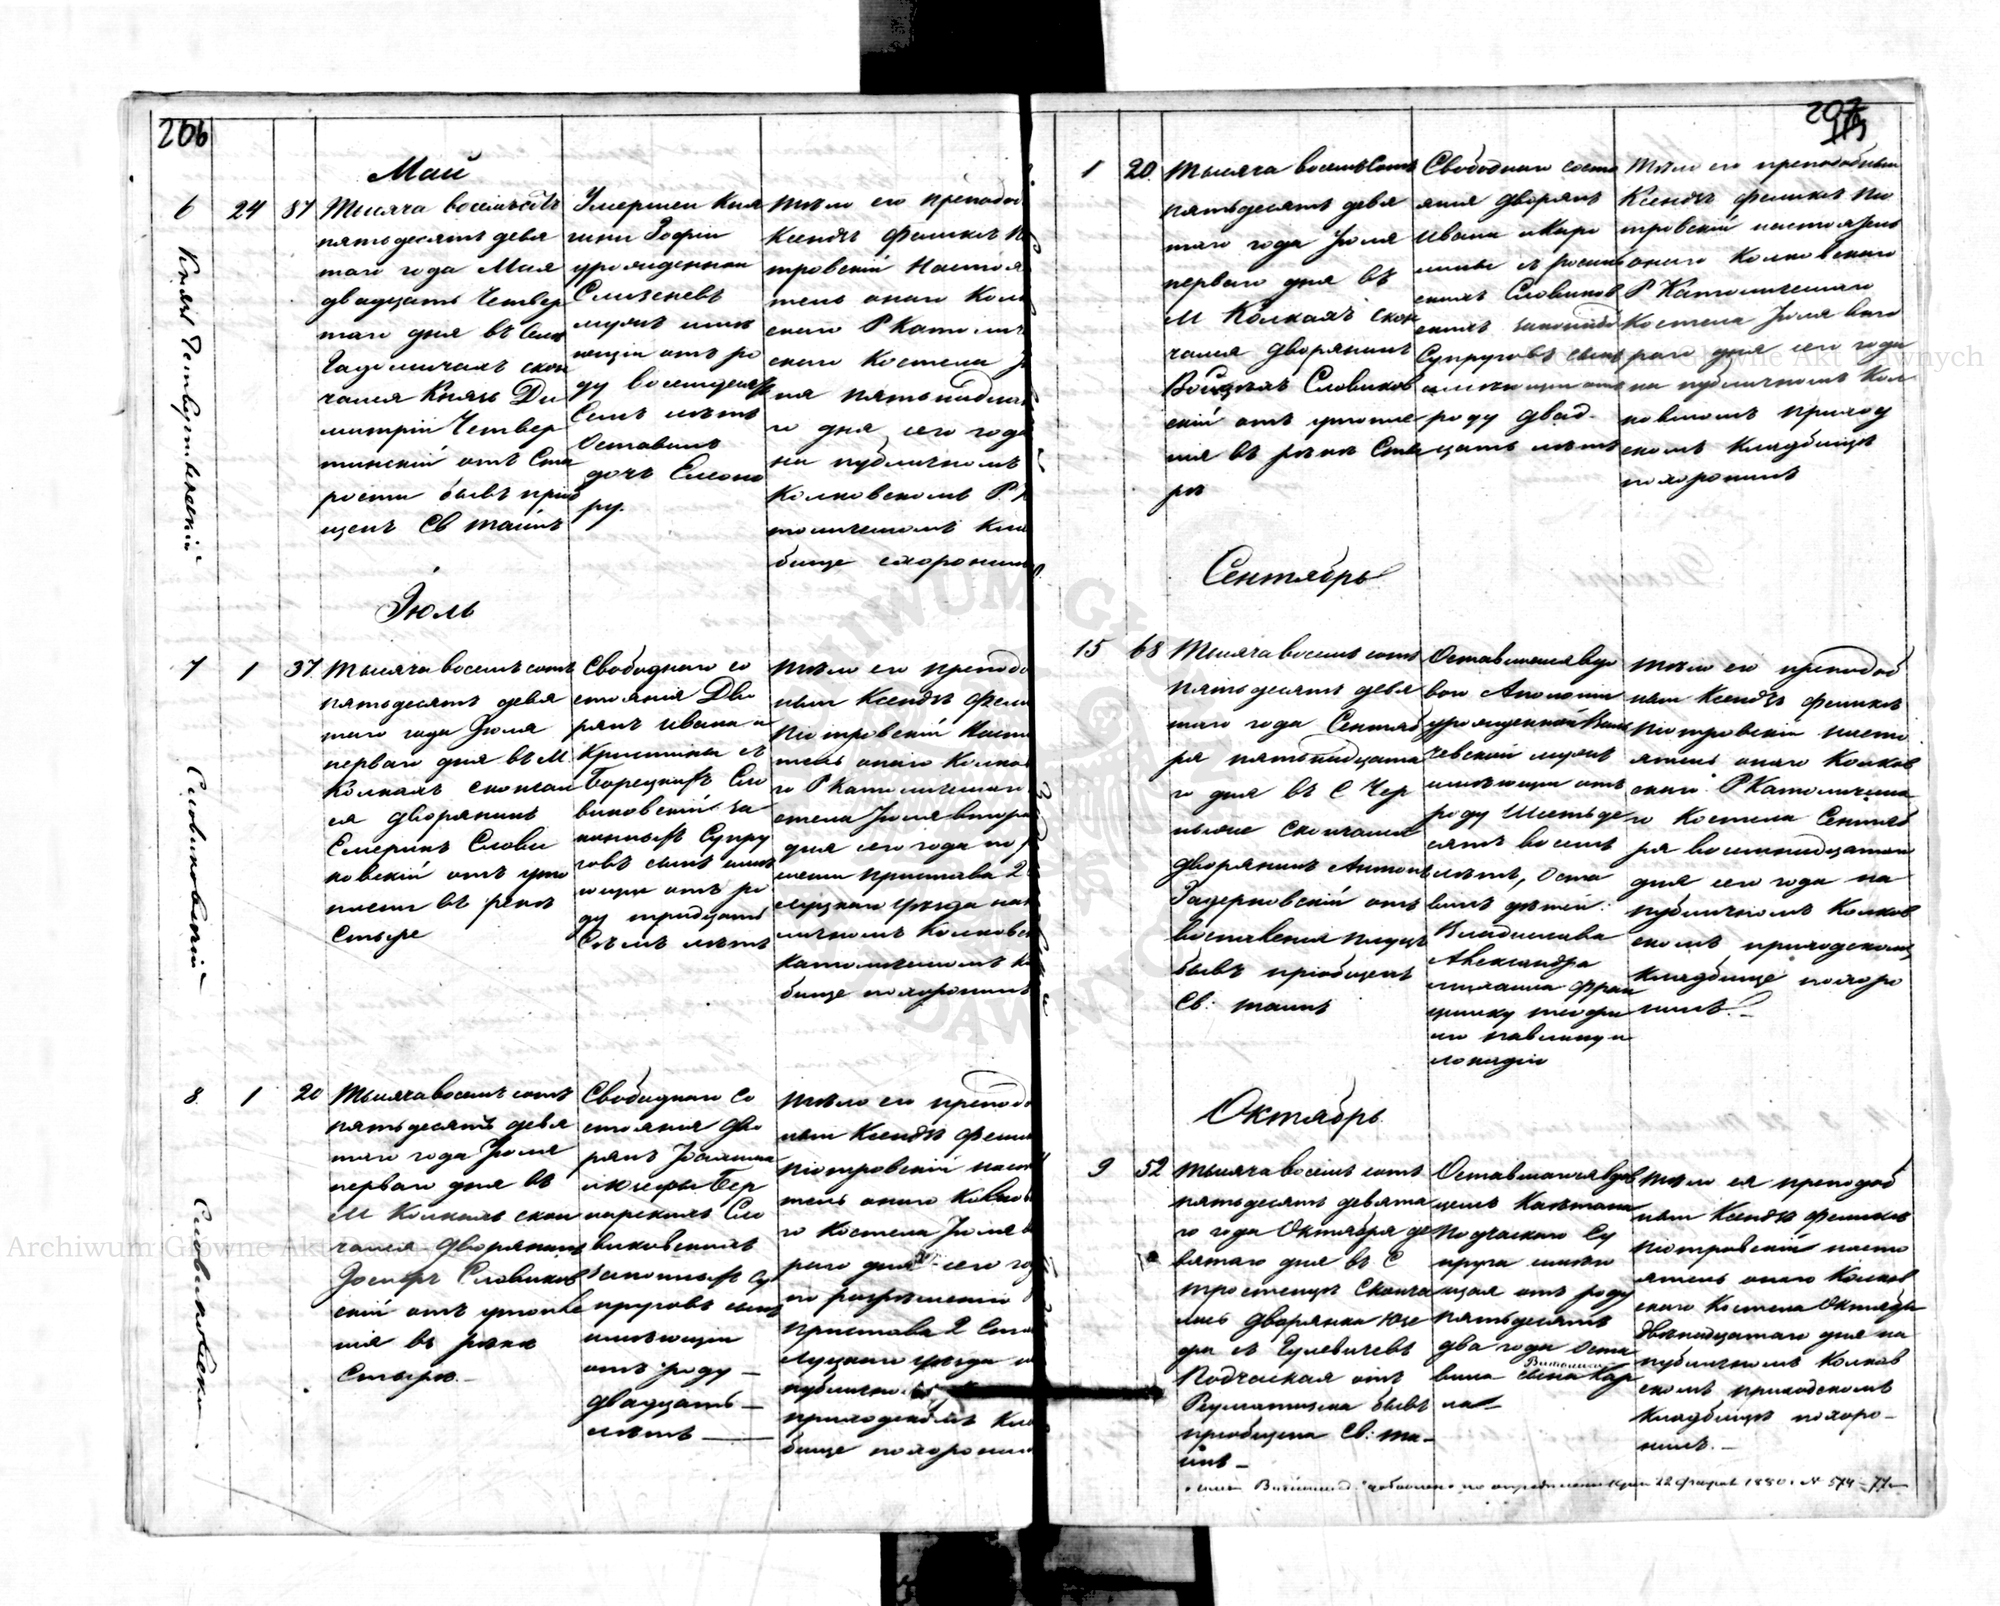 206
Май
6 24 87
Князь Четвертинскій
Тысяча восемьсотъ
пятьдесятъ девя
таго года Мая
двадцать Четвер
таго дня въ
скон
чался Князь Ди
митрій Четвер
тинскій отъ Ста
рости бывъ пріоб
щенъ Св Таинъ
Умершей Кня
гини Зофіи
урожденной
Слизеневъ
мужъ имѣ
ющій отъ ро
ду восемдесятъ
Семъ лѣтъ
Оставилъ
дочь Елеоно
ру.
тѣло его преподоб
Ксендзъ Феликсъ Пі
тровскій Настоя
тель онаго Колк
скаго Р Католич
скаго Костела
ня пятьнадцат
го дня сего года
на публичномъ
Колковскомъ Р. К
толическомъ Кла
бище схороненъ
Іюль
7 1 37
Словиковскій
Тысяча восемъ сотъ
пятьдесятъ девя
таго года Іюля
перваго дня въ М
Колкахъ скончал
ся дворянинъ
Северинъ Слови
ковскій отъ уто
пленія въ рекѣ
Стыре
Свободнаго со
стоянія Дво
рянъ Ивана и
Кристины съ
Борецкихъ Сло
виковскихъ за
конныхъ Супру
говъ сынъ имѣ
ющій отъ ро
ду тридцать
Семъ лѣтъ
тѣло его преподо
нымъ Ксендзъ Фели
Піотровскій Насто
тель онаго Колков
го Р Католическаг
стела Іюля втора
дня сего года по р
шенію Пристава 2
Луцкаго уѣзда на п
личномъ Колковск
католическомъ К
бище похороненъ
8 1 20
Словиковскій
Тысяча восемъ сотъ
пятьдесятъ девя
таго года Іюля
перваго дня въ
М Колкахъ скон
чался дворянинъ
Іосифъ Словиков
скій отъ утопле
нія въ рѣкѣ
Стырѣ. —
Свободнаго Со
стоянія Дво
рянъ
и Бер
нарскихъ Сло
виковскихъ
законныхъ Су
пруговъ сынъ
имѣющій
отъ роду —
двадцать —
лѣтъ —
тѣло его преподо
нымъ Ксендзъ Фели
Піотровскій насто
тель онаго Колков
го Костела Іюля в
раго дня сего го
по разрѣшенію
Пристава 2 Ста
Луцкаго уѣзда
публично
приходскомъ Кла
бище похоронен
207
1 20.
Тысяча восемьсотъ
пятьдесятъ девя
таго года Іюля
перваго дня въ
М Колкахъ скон
чался дворянинъ
Войцехъ Словиков
скій отъ утопле
нія въ рѣкѣ Сты
рѣ
Свободнаго состо
янія дворянъ
Ивана и Каро
лины съ
скихъ Словиков
скихъ законныхъ
Супруговъ сынъ
имѣющій отъ
роду двад-
цать лѣтъ
тѣло его преподобнымъ
Ксендзъ Феликсъ Піо
тровскій настоятель
онаго Колковскаго
Р Католическаго
Костела Іюля вто
раго дня сего года
на публичномъ Кол
ковскомъ приход
скомъ кладбищѣ
похороненъ
Сентябрь
15 68
Тысяча восемь сотъ
пятьдесятъ девя
таго года Сентяб
ря пятьнадцата
го дня въ С Чер
нысже Скончался
дворянинъ Антонъ
Гацерковскій отъ
воспаленія плуцъ
бывъ пріобщенъ
Св: таинъ
Оставшейся вдо
вой Аполоніи
урожденной
чевской мужъ
имѣющій отъ
роду Шестьде
сятъ восемь
лѣтъ, оста
вилъ дѣтей:
Владислава
Александра
Михаила Фран
цишку Теофи
лю Павлину и
Леокадію
тѣло его преподоб
нымъ Ксендзъ Феликсъ
Піотровскій насто
ятель онаго Колков
скаго Р Католическа
го Костела Сентяб
ря восемнадцатаго
дня сего года на
публичномъ Колков
скомъ приходскомъ
кладбище похоро
ненъ. —
Октябрь.
9 52
Тысяча восемь сотъ
пятьдесятъ девята
го года Октября де
вятаго дня въ С
Тростенцѣ Сконча
лась дворянка Юзе
фа съ Гулевичевъ
Подчаская отъ
Ревматизма бывъ
пріобщена Св: та-
инъ —
Оставшагося вдов
цемъ Каетана
Подчаскаго Су
пруга имѣю
щая отъ роду
пятьдесятъ
два года Оста
вила сына Кар
ла —
тѣло ея преподоб
нымъ Ксендзъ Феликсъ
Піотровскій насто
ятель онаго Колков
скаго Костела Октября
двѣнадцатаго дня на
публичномъ Колков
скомъ приходскомъ
кладбищѣ похоро-
ненъ. —
22 Февр 1880 г № 574 — 77
Archiwum Główne Akt Dawnych